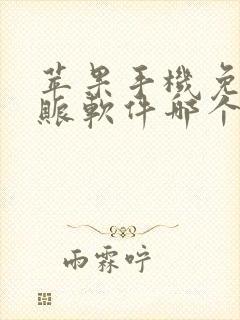 苹果手機免
賬軟件哪个
雨霖咛